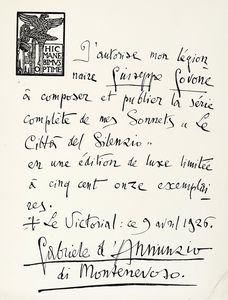 HIC
MANE
BIMUS
OPTIME
J'autorise mon légion
naire Giuseppe Govone
à composer et publier la série
complète de mes Sonnets "Le
Città del Silenzio"
en une édition de luxe limitée
à cinq cent onze exemplai
res.
Le Vittorial: ce 9 avril 1926.
Gabriele d'Annunzio
di Montenevoso.